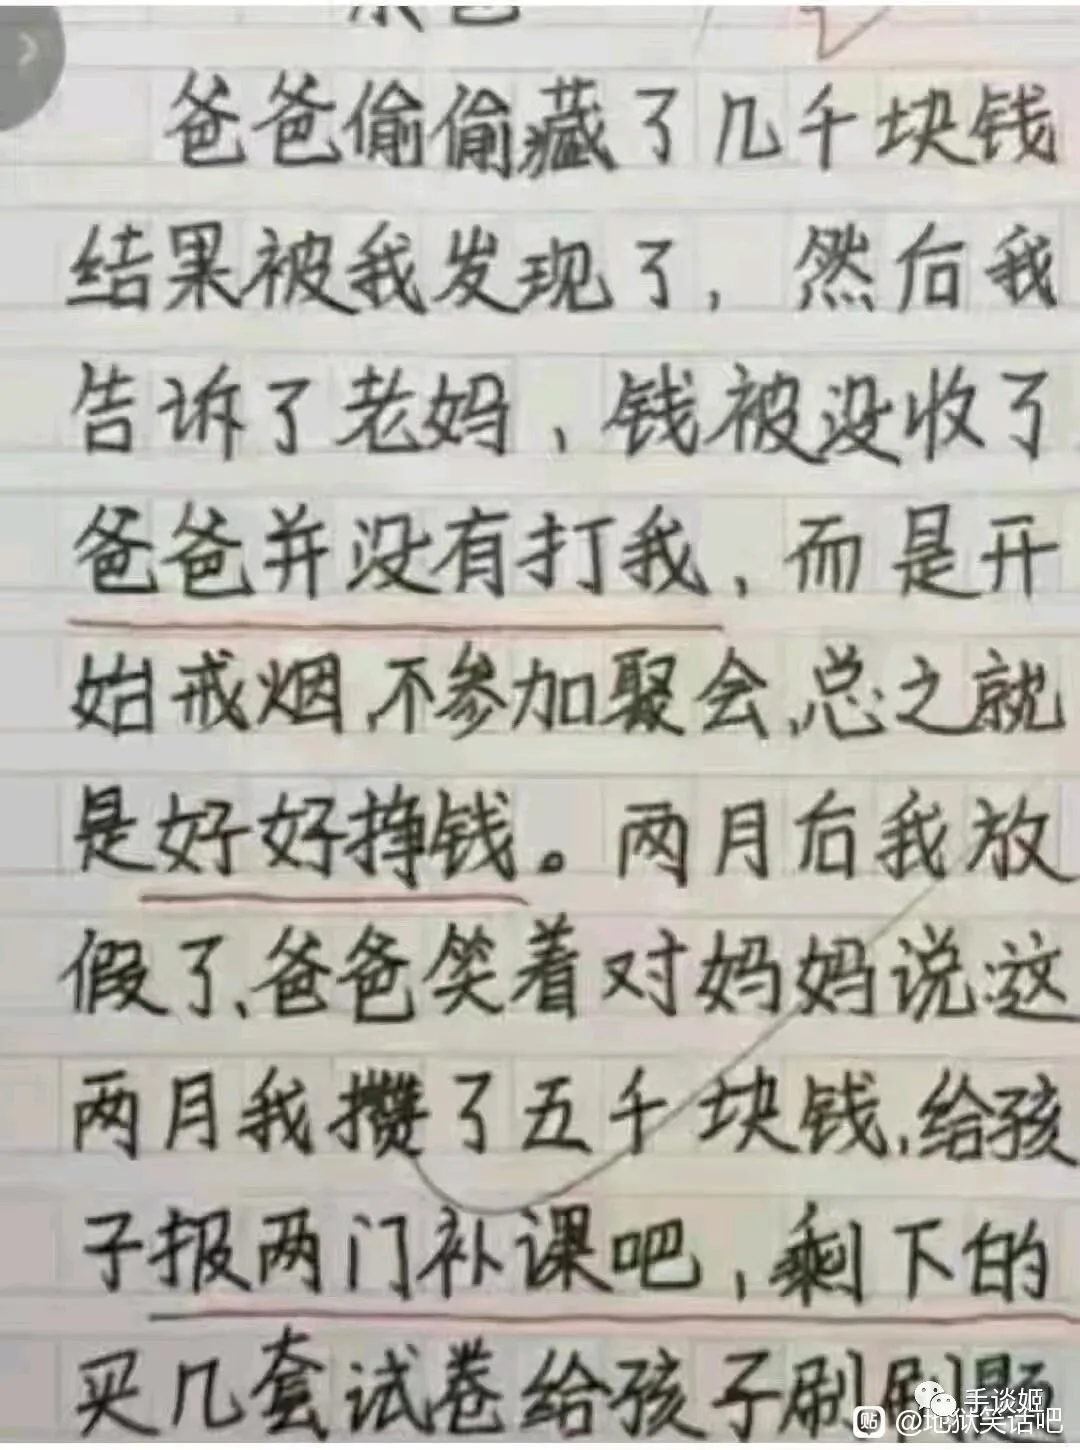 爸爸偷偷藏了几千块钱
结果被我发现了，然后我
告诉了老妈，钱被没收了
爸爸并没有打我，而是开
始戒烟,不参加聚会,总之就
是好好挣钱。两月后我放
假了,爸爸笑着对妈妈说:这
两月我攒了五千块钱,给孩
子报两门补课吧，剩下的
买几套试卷给孩子刷刷题
手谈姬
贴 @地狱笑话吧